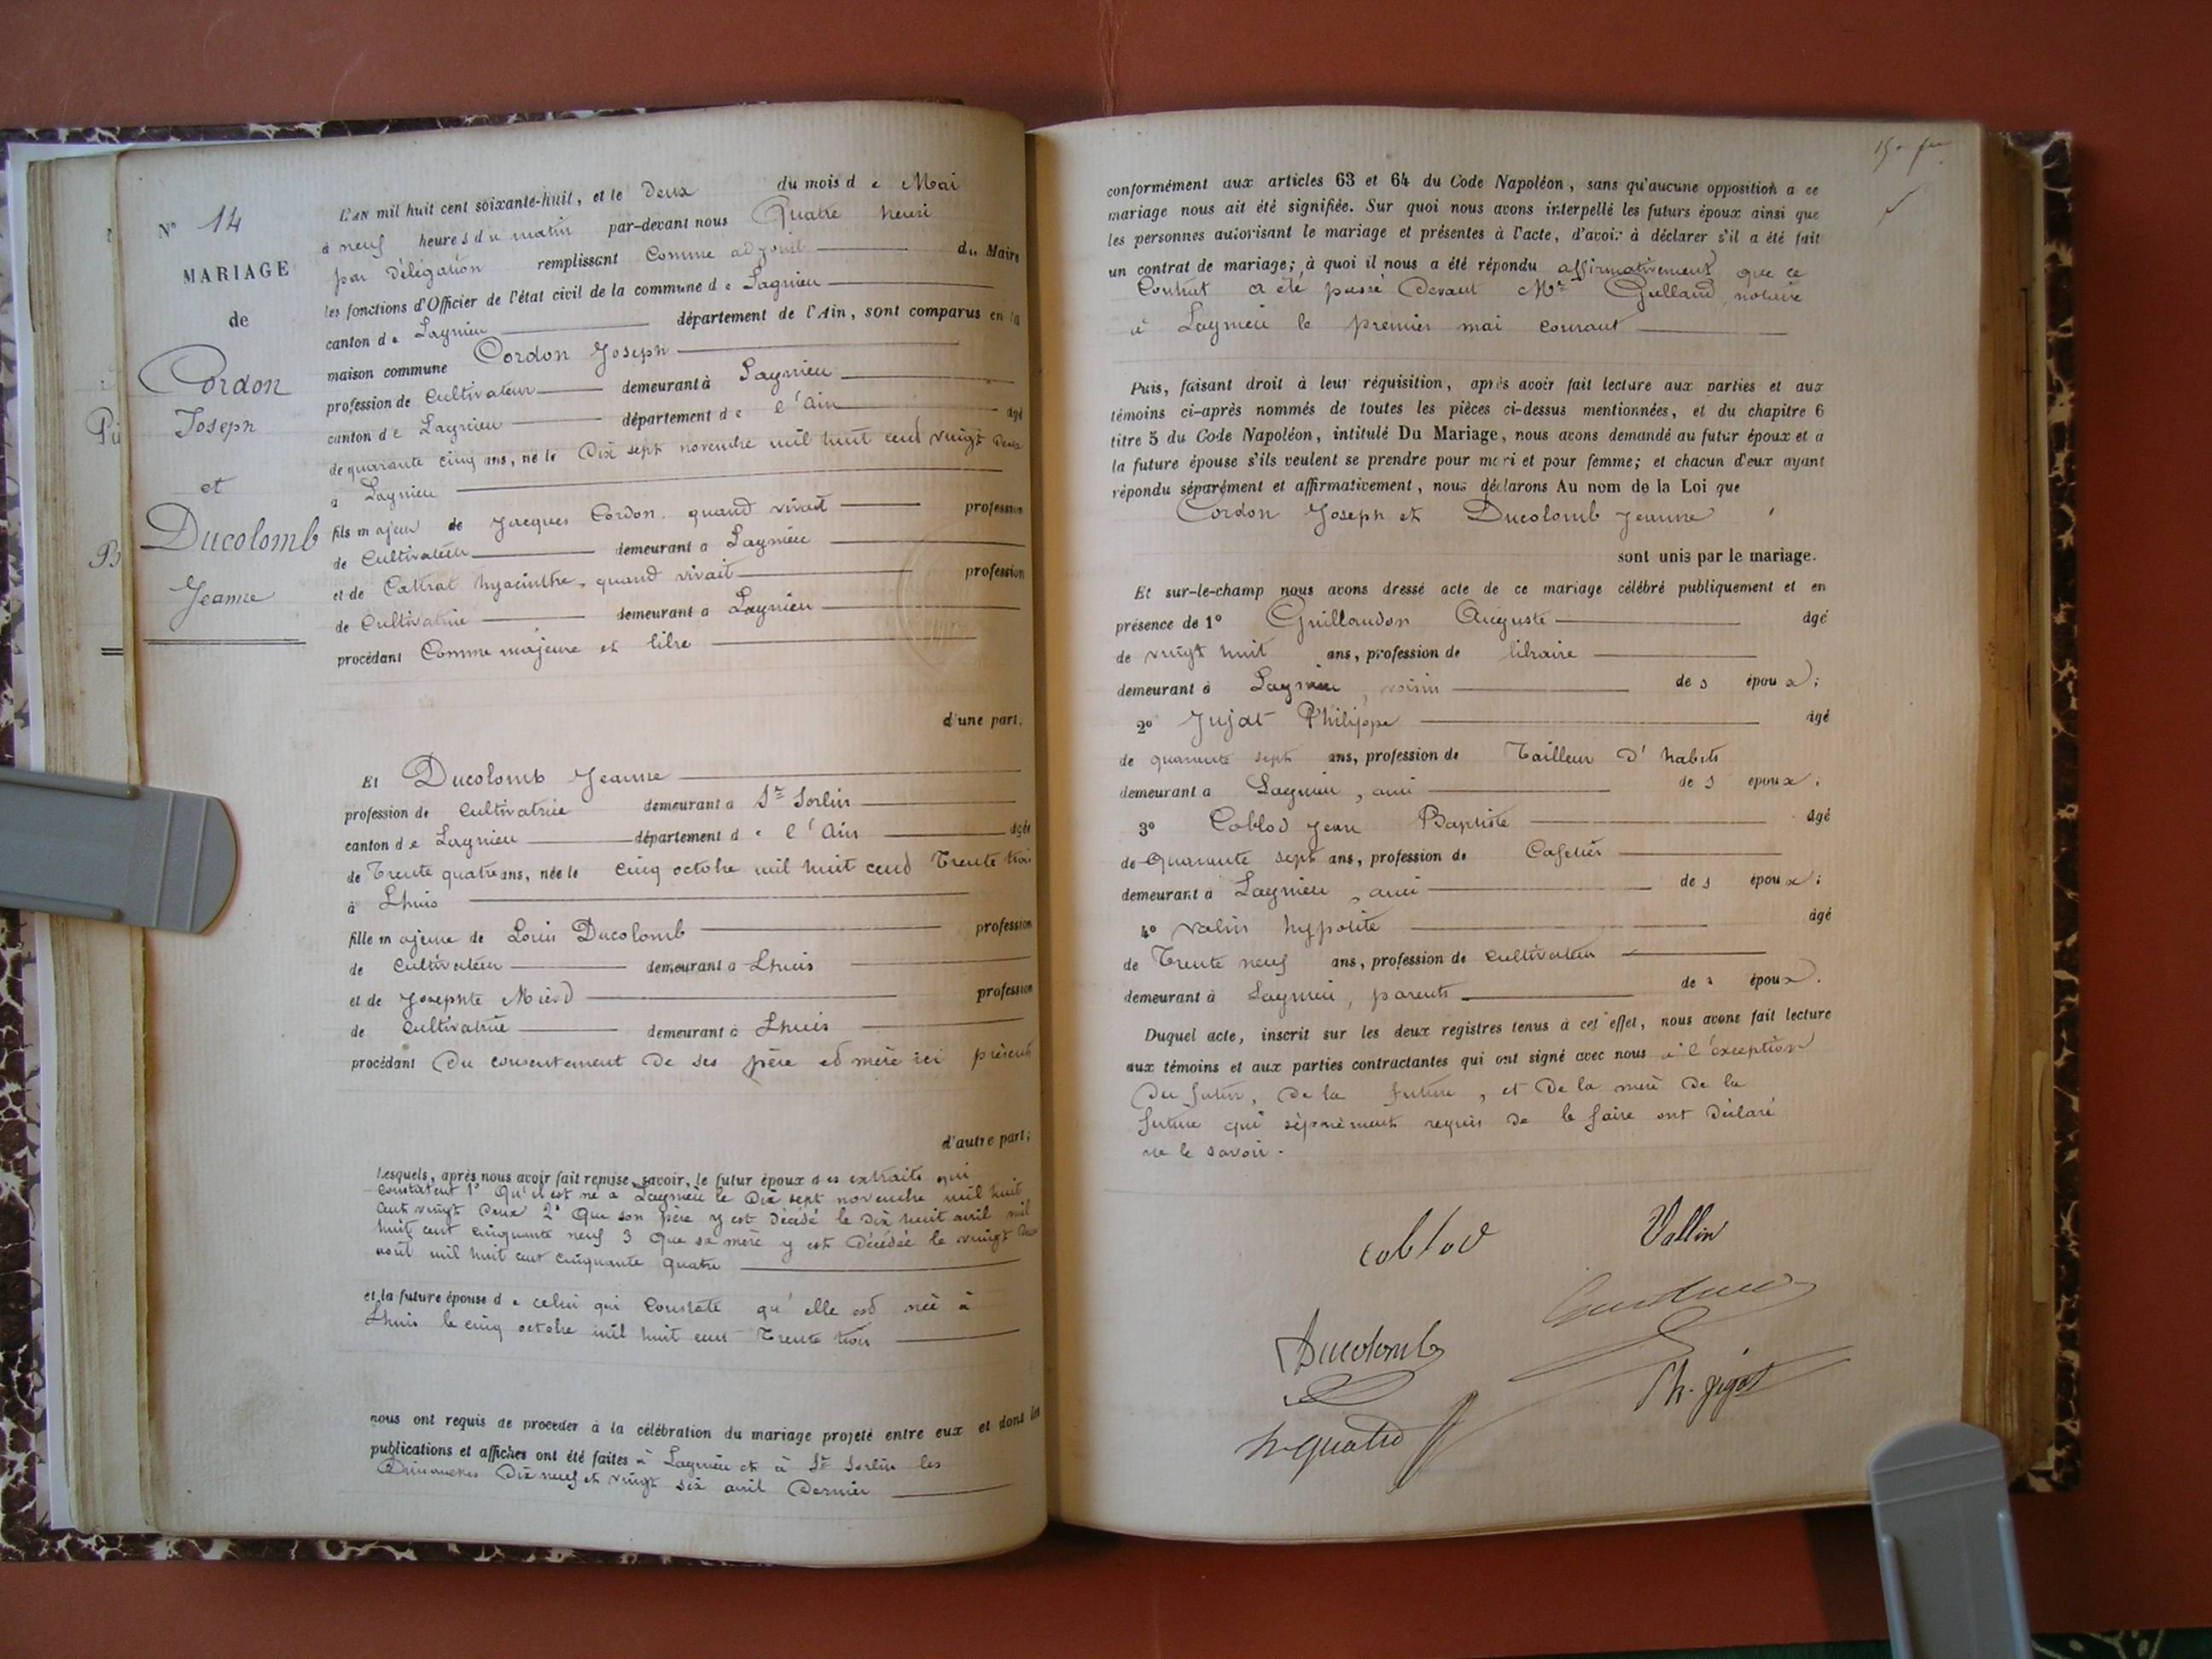 N° 14
MARIAGE
de
Cordon
Joseph
et
Ducolomb
Jeanne
L'AN mil huit cent soixante-huit, et le Deux du mois de Mai
à neuf heures du matin par-devant nous Quatre henri
par Délégation remplissant Comme adjoint du Maire
les fonctions d'Officier de l'état civil de la commune de Lagnieu
canton de Lagnieu département de l'Ain, sont comparus en la
maison commune Cordon Joseph
profession de Cultivateur demeurant à Lagnieu
canton de Lagnieu département de l'Ain âgé
de quarante cinq ans, né le Dix sept novembre mil huit cent vingt Deux
à Lagnieu
fils majeur de Jacques Cordon, quand vivait profession
de Cultivateur demeurant à Lagnieu
et de hyacinthe, quand vivait profession
de Cultivatrice demeurant à Lagnieu
procédant Comme majeure et libre
d'une part;
Et Ducolomb Jeanne
profession de Cultivatrice demeurant à St Sorlin
canton de Lagnieu département de l'Ain âgée
de Trente quatre ans, née le cinq octobre mil huit cent Trente trois
à Lhuis
fille majeure de Louis Ducolomb profession
de Cultivateur demeurant à Lhuis
et de Josephte profession
de Cultivatrice demeurant à Lhuis
procédant Du consentement de ses père et mère ici présents
d'autre part;
Lesquels, après nous avoir fait remise, savoir, le futur époux des extraits qui
constatent 1° Qu'il est né à Lagnieu le Dix sept novembre mil huit
cent vingt Deux 2° Que son père y est décédé le Dix huit avril mil
huit cent cinquante neuf 3 Que sa mère y est Décédée le vingt Deux
août mil huit cent cinquante quatre
et la future épouse de celui qui Constate qu'elle est née à
Lhuis le cinq octobre mil huit cent Trente trois
nous ont requis de procéder à la célébration du mariage projeté entre eux et dont les
publications et affiches ont été faites à Lagnieu et à St Sorlin les
Dimanches Dix neuf et vingt six avril Dernier
conformément aux articles 63 et 64 du Code Napoléon, sans qu'aucune opposition à ce
mariage nous ait été signifiée. Sur quoi nous avons interpellé les futurs époux ainsi que
les personnes autorisant le mariage et présentes à l'acte, d'avoir à déclarer s'il a été fait
un contrat de mariage; à quoi il nous a été répondu affirmativement que ce
Contrat a été passé Devant Mr notaire
à Lagnieu le premier mai courant
Puis, faisant droit à leur réquisition, après avoir fait lecture aux parties et aux
témoins ci-après nommés de toutes les pièces ci-dessus mentionnées, et du chapitre 6
titre 5 du Code Napoléon, intitulé Du Mariage, nous avons demandé au futur époux et à
la future épouse s'ils veulent se prendre pour mari et pour femme; et chacun d'eux ayant
répondu séparément et affirmativement, nous déclarons Au nom de la Loi que
Cordon Joseph et Ducolomb Jeanne
sont unis par le mariage.
Et sur-le-champ nous avons dressé acte de ce mariage célébré publiquement et en
présence de 1° Guillaudon Auguste âgé
de vingt huit ans, profession de libraire
demeurant à Lagnieu, voisin des époux;
2° Jujat Philippe âgé
de quarante sept ans, profession de Tailleur D'habits
demeurant à Lagnieu, ami des époux;
3° Coblod Jean Baptiste âgé
de Quarante sept ans, profession de Cafetier
demeurant à Lagnieu, ami des époux;
4° Valin hypolite âgé
de Trente neuf ans, profession de Cultivateur
demeurant à Lagnieu, parents des époux.
Duquel acte, inscrit sur les deux registres tenus à cet effet, nous avons fait lecture
aux témoins et aux parties contractantes qui ont signé avec nous à l'exception
Du futur, De la future, et De la mère De la
future qui séparément requis De le faire ont Déclaré
ne le savoir.
coblod Vallin
Ducolomb
Ph. Jigat
h quatre